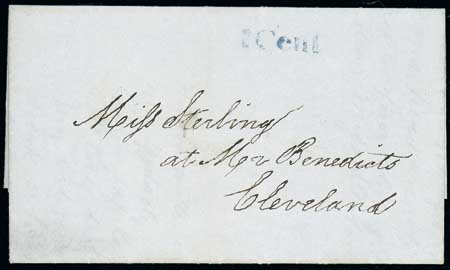 1 Cent
Miss Sterling
at Mr Benedicts
Cleveland